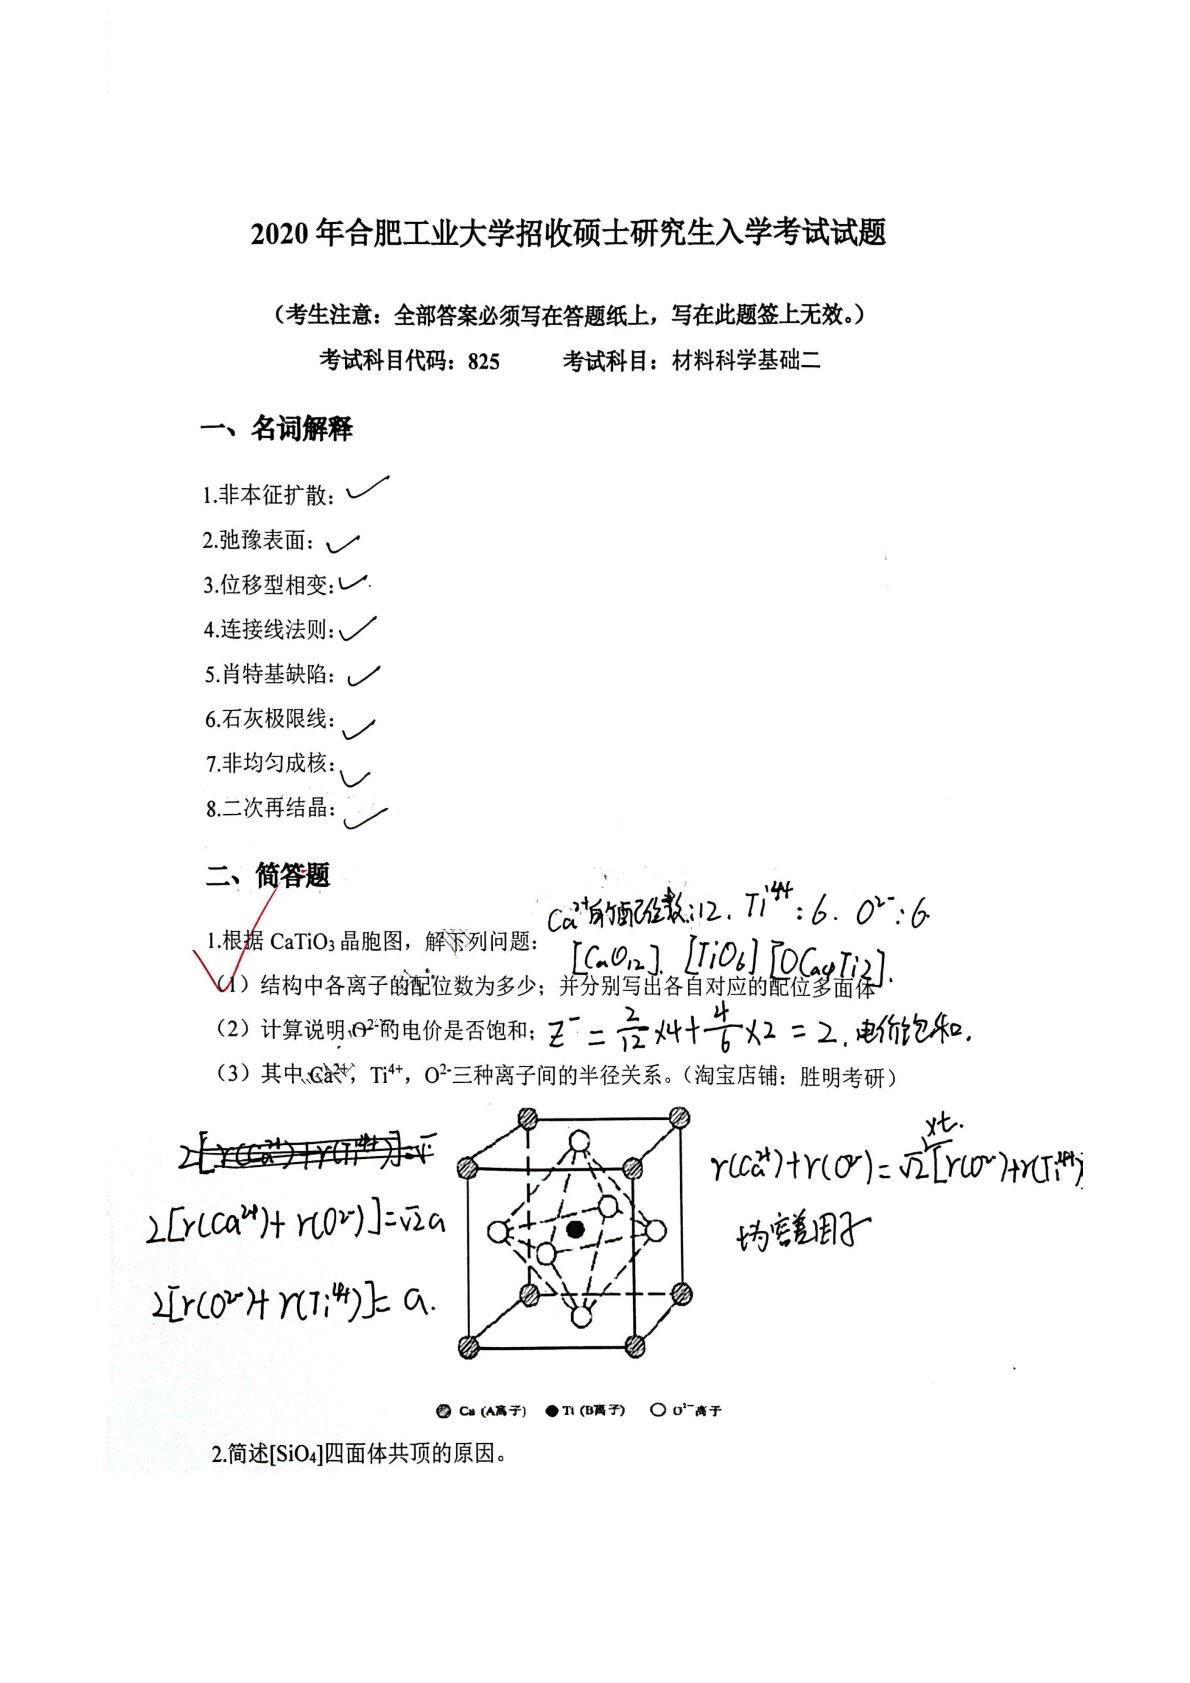 2020 年合肥工业大学招收硕士研究生入学考试试题
（考生注意：全部答案必须写在答题纸上，写在此题签上无效。）
考试科目代码：825 考试科目：材料科学基础二
一、名词解释
1.非本征扩散：
2.弛豫表面：
3.位移型相变：
4.连接线法则：
5.肖特基缺陷：
6.石灰极限线：
7.非均匀成核：
8.二次再结晶：
二、简答题
Ca²⁺的配位数:12. Ti⁴⁺:6. O²⁻:6
1.根据 CaTiO₃ 晶胞图，解下列问题：
[CaO₁₂]. [TiO₆] [OCa₄Ti₂].
（1）结构中各离子的配位数为多少；并分别写出各自对应的配位多面体
（2）计算说明 O²⁻的电价是否饱和； Z⁻ = 2/12 x4 + 4/6 x2 = 2. 电价饱和.
（3）其中 Ca²⁺，Ti⁴⁺，O²⁻三种离子间的半径关系。（淘宝店铺：胜明考研）
xt.
r(Ca²⁺)+r(O²⁻)=√2[r(O²⁻)+r(Ti⁴⁺)
t为容差因子
2[r(Ca²⁺)+r(O²⁻)]=√2a
2[r(O²⁻)+r(Ti⁴⁺)]= a.
Ca (A离子) Ti (B离子) O²⁻离子
2.简述[SiO₄]四面体共顶的原因。